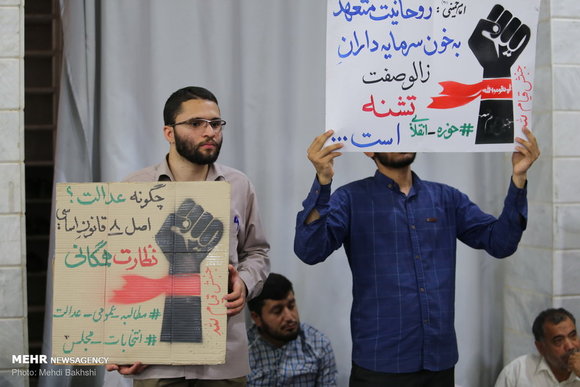 امام خمینی: روحانیت متعهد
به خون سرمایه داران
زالو صفت
تشنه
است...
#حوزه_انقلابی
جنبش قیام لله
چگونه عدالت؟
اصل ۸ قانون اساسی:
نظارت همگانی
#مطالبه_عمومی_عدالت
#انتخابات_مجلس
جنبش قیام لله
MEHR NEWSAGENCY
Photo: Mehdi Bakhshi